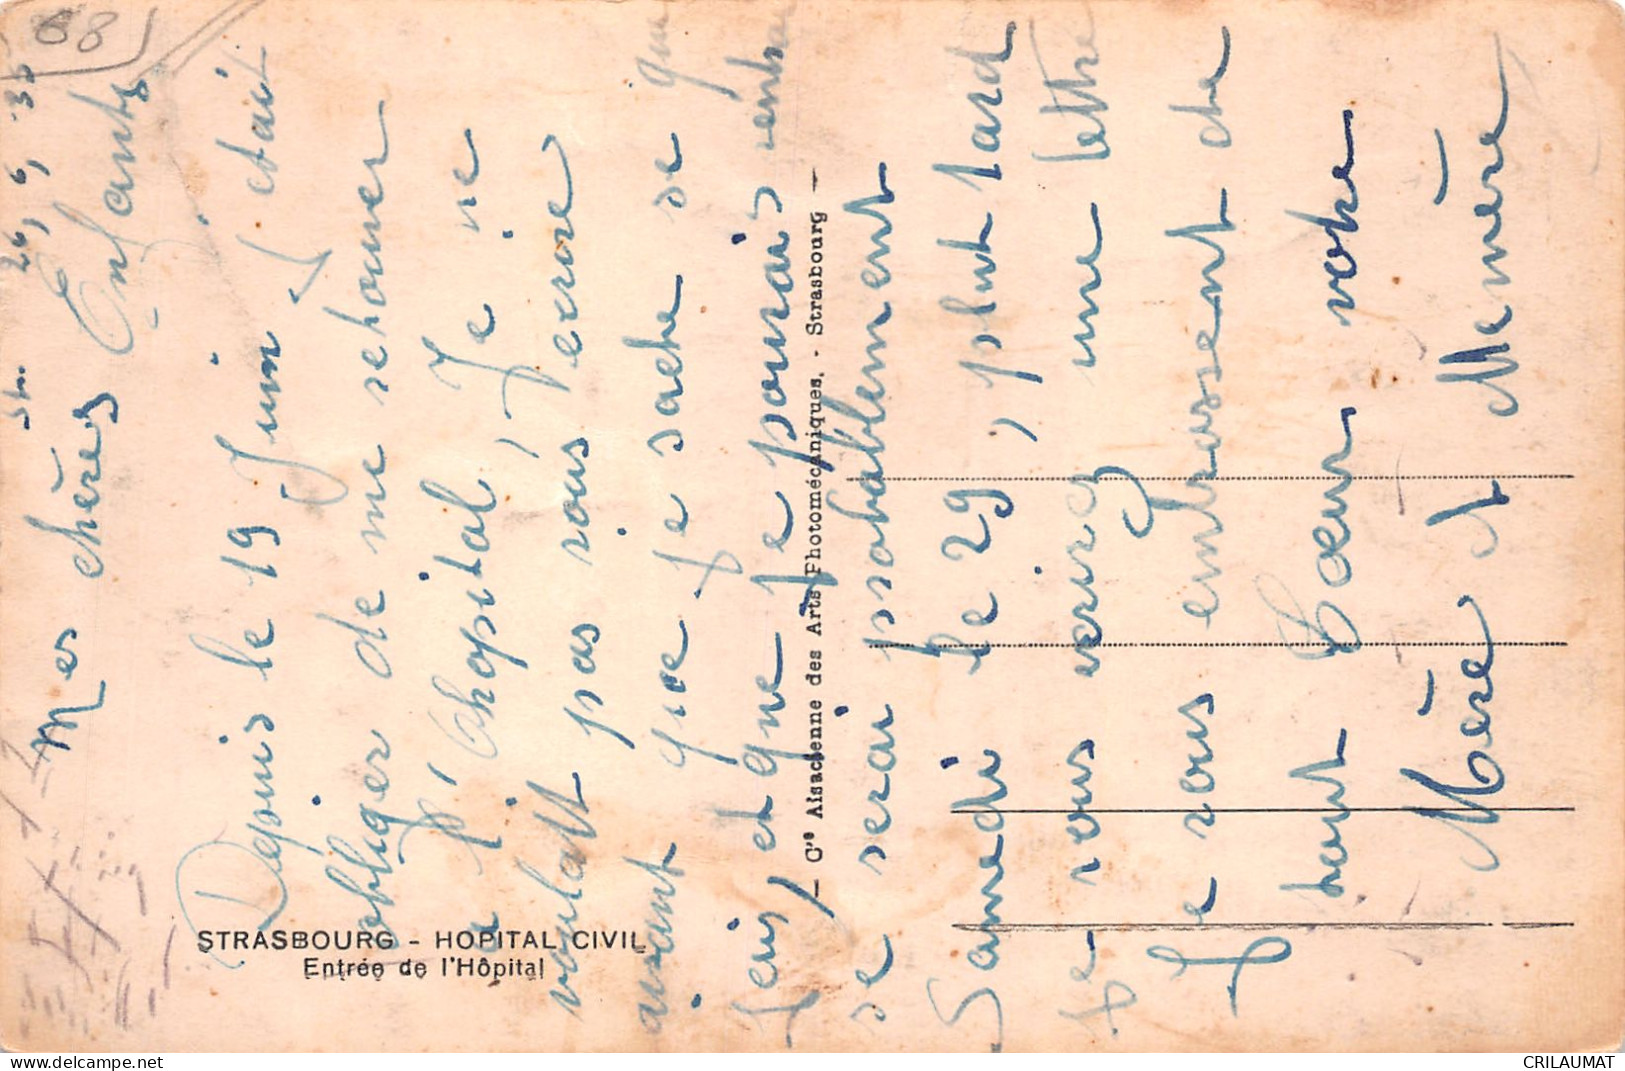 68
St. 26, 6, 35
Mes chères Enfants
Depuis le 19 Juin J'etait
obbliger de me sehourner
a l'Chopital, Je ne
voulait pas vous ecrire
avant que Je sache se que
Je pourais
se serai probablement
Samedi le 29, plut tard
Je vous verirez une lettre
Je vous embrassent de
tout Cœur votre
Mère et Memère
STRASBOURG - HOPITAL CIVIL
Entrée de l'Hôpital
— Cie Alsacienne des Arts Photomécaniques. - Strasbourg —
www.delcampe.net
CRILAUMAT